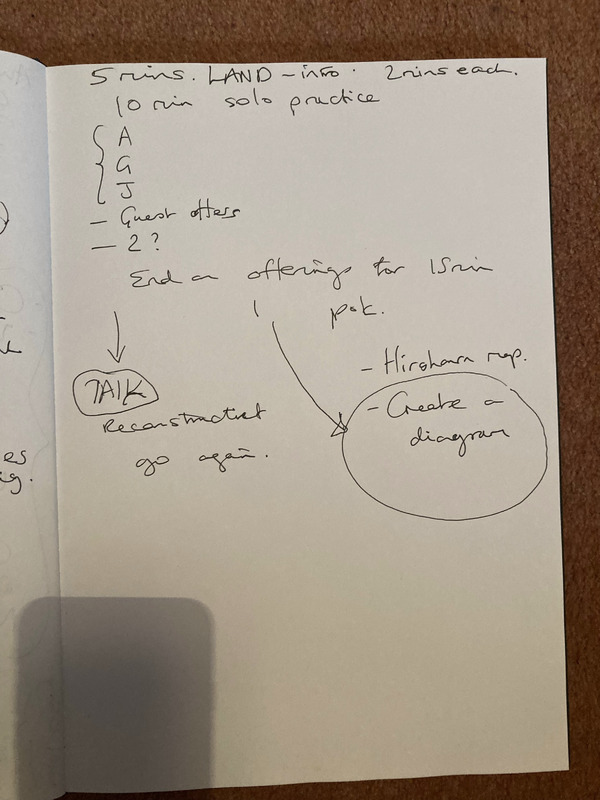 5 mins. LAND - intro. 2 mins each.
10 min solo practice
A
G
J
- Guest offers
- 2 ?
End on offerings for 15 min
TALK
go again.
- map.
- Create a
diagram
es
ig.